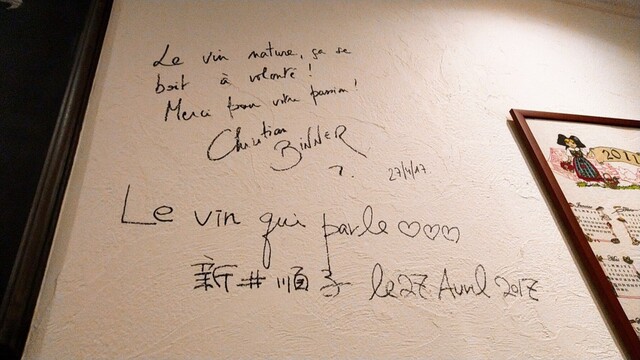 Le vin nature, ça se
boit à volonté!
Merci pour votre passion!
Christian
BINNER
27/4/17
Le vin qui parle ♡♡♡
新井順子 le 27 Avril 2017
2017